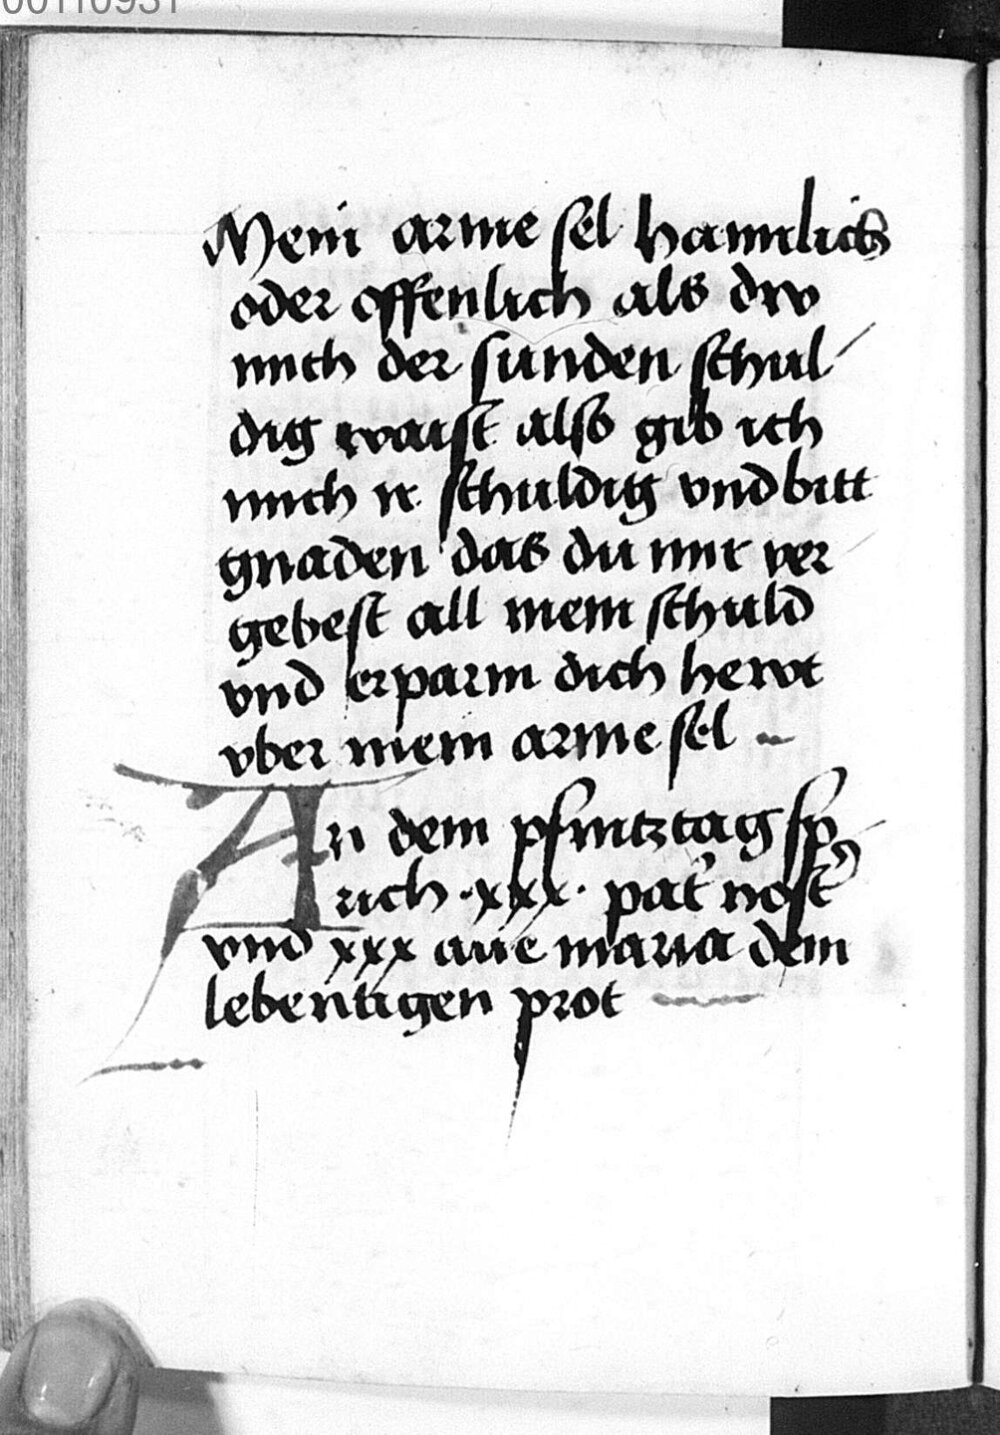 00110931
Mein arme sel hamlich
oder offenlich als dw
mich der sunden schul
dig waist also gib ich
mich ir schuldig vnd bitt
gnaden das du mir ver
gebest all mein schuld
vnd erparm dich hewt
vber mein arme sel
An dem pfintztag sp
rich · xxx · pat' nost'
vnd xxx aue maria dem
lebentigen prot